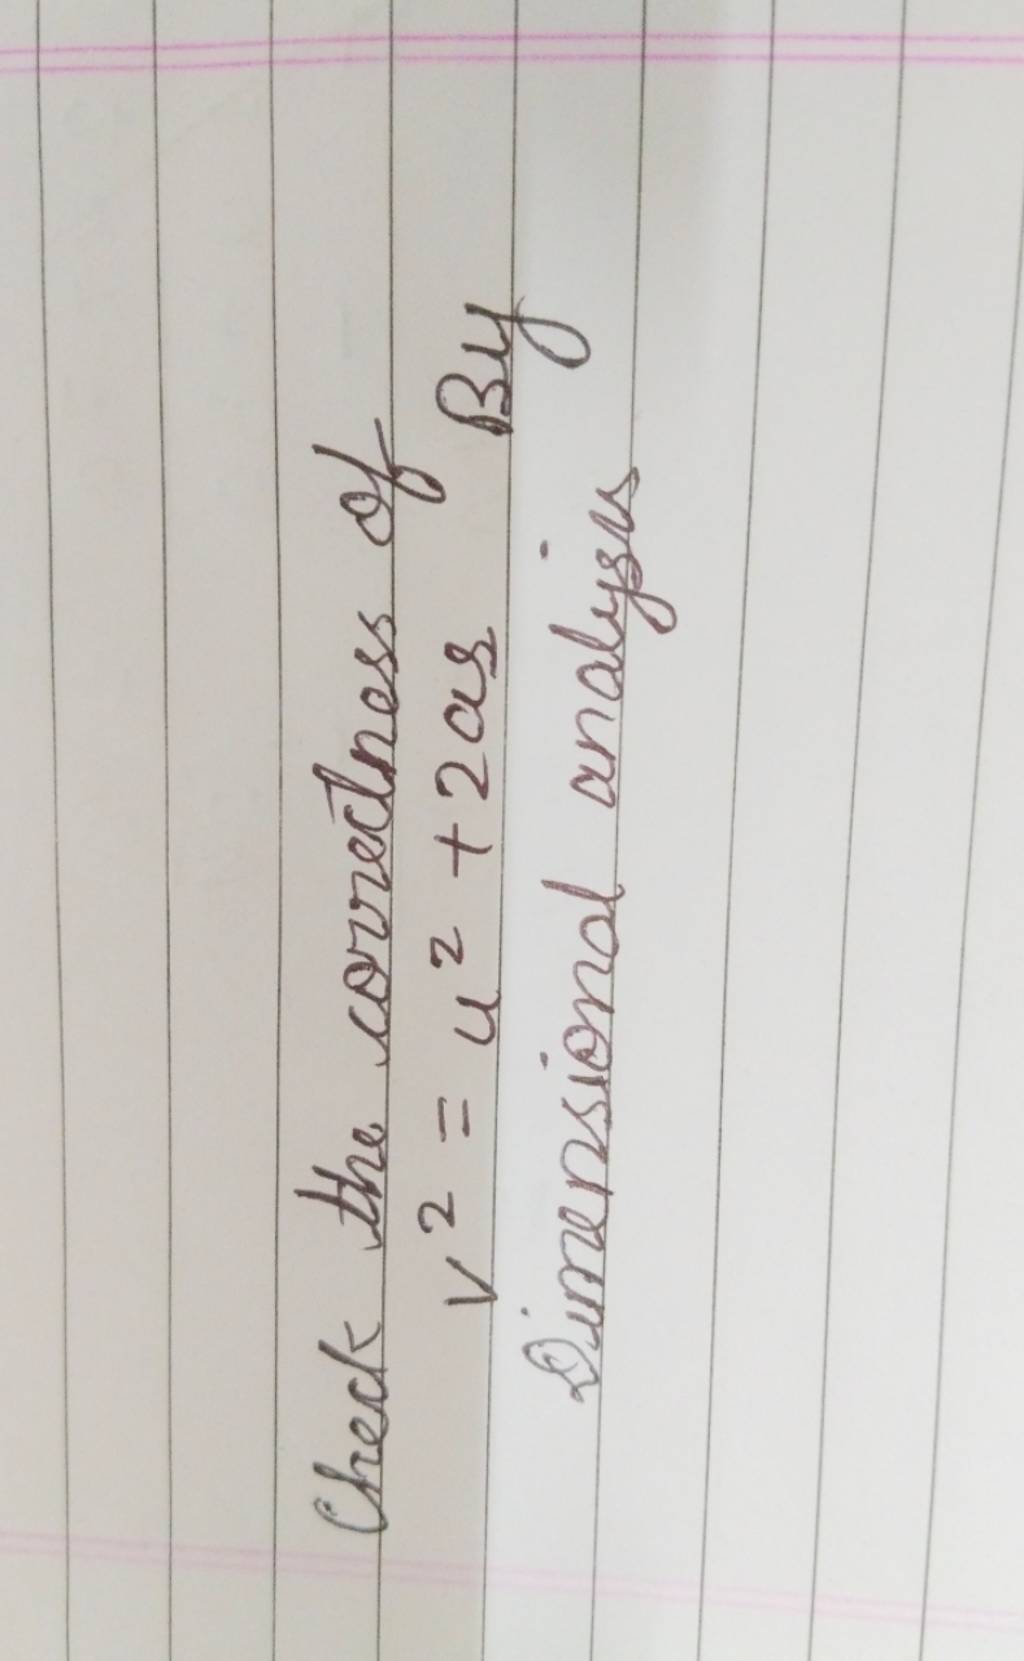 Check the correctness of
v² = u² + 2as By
Dimensional analysis